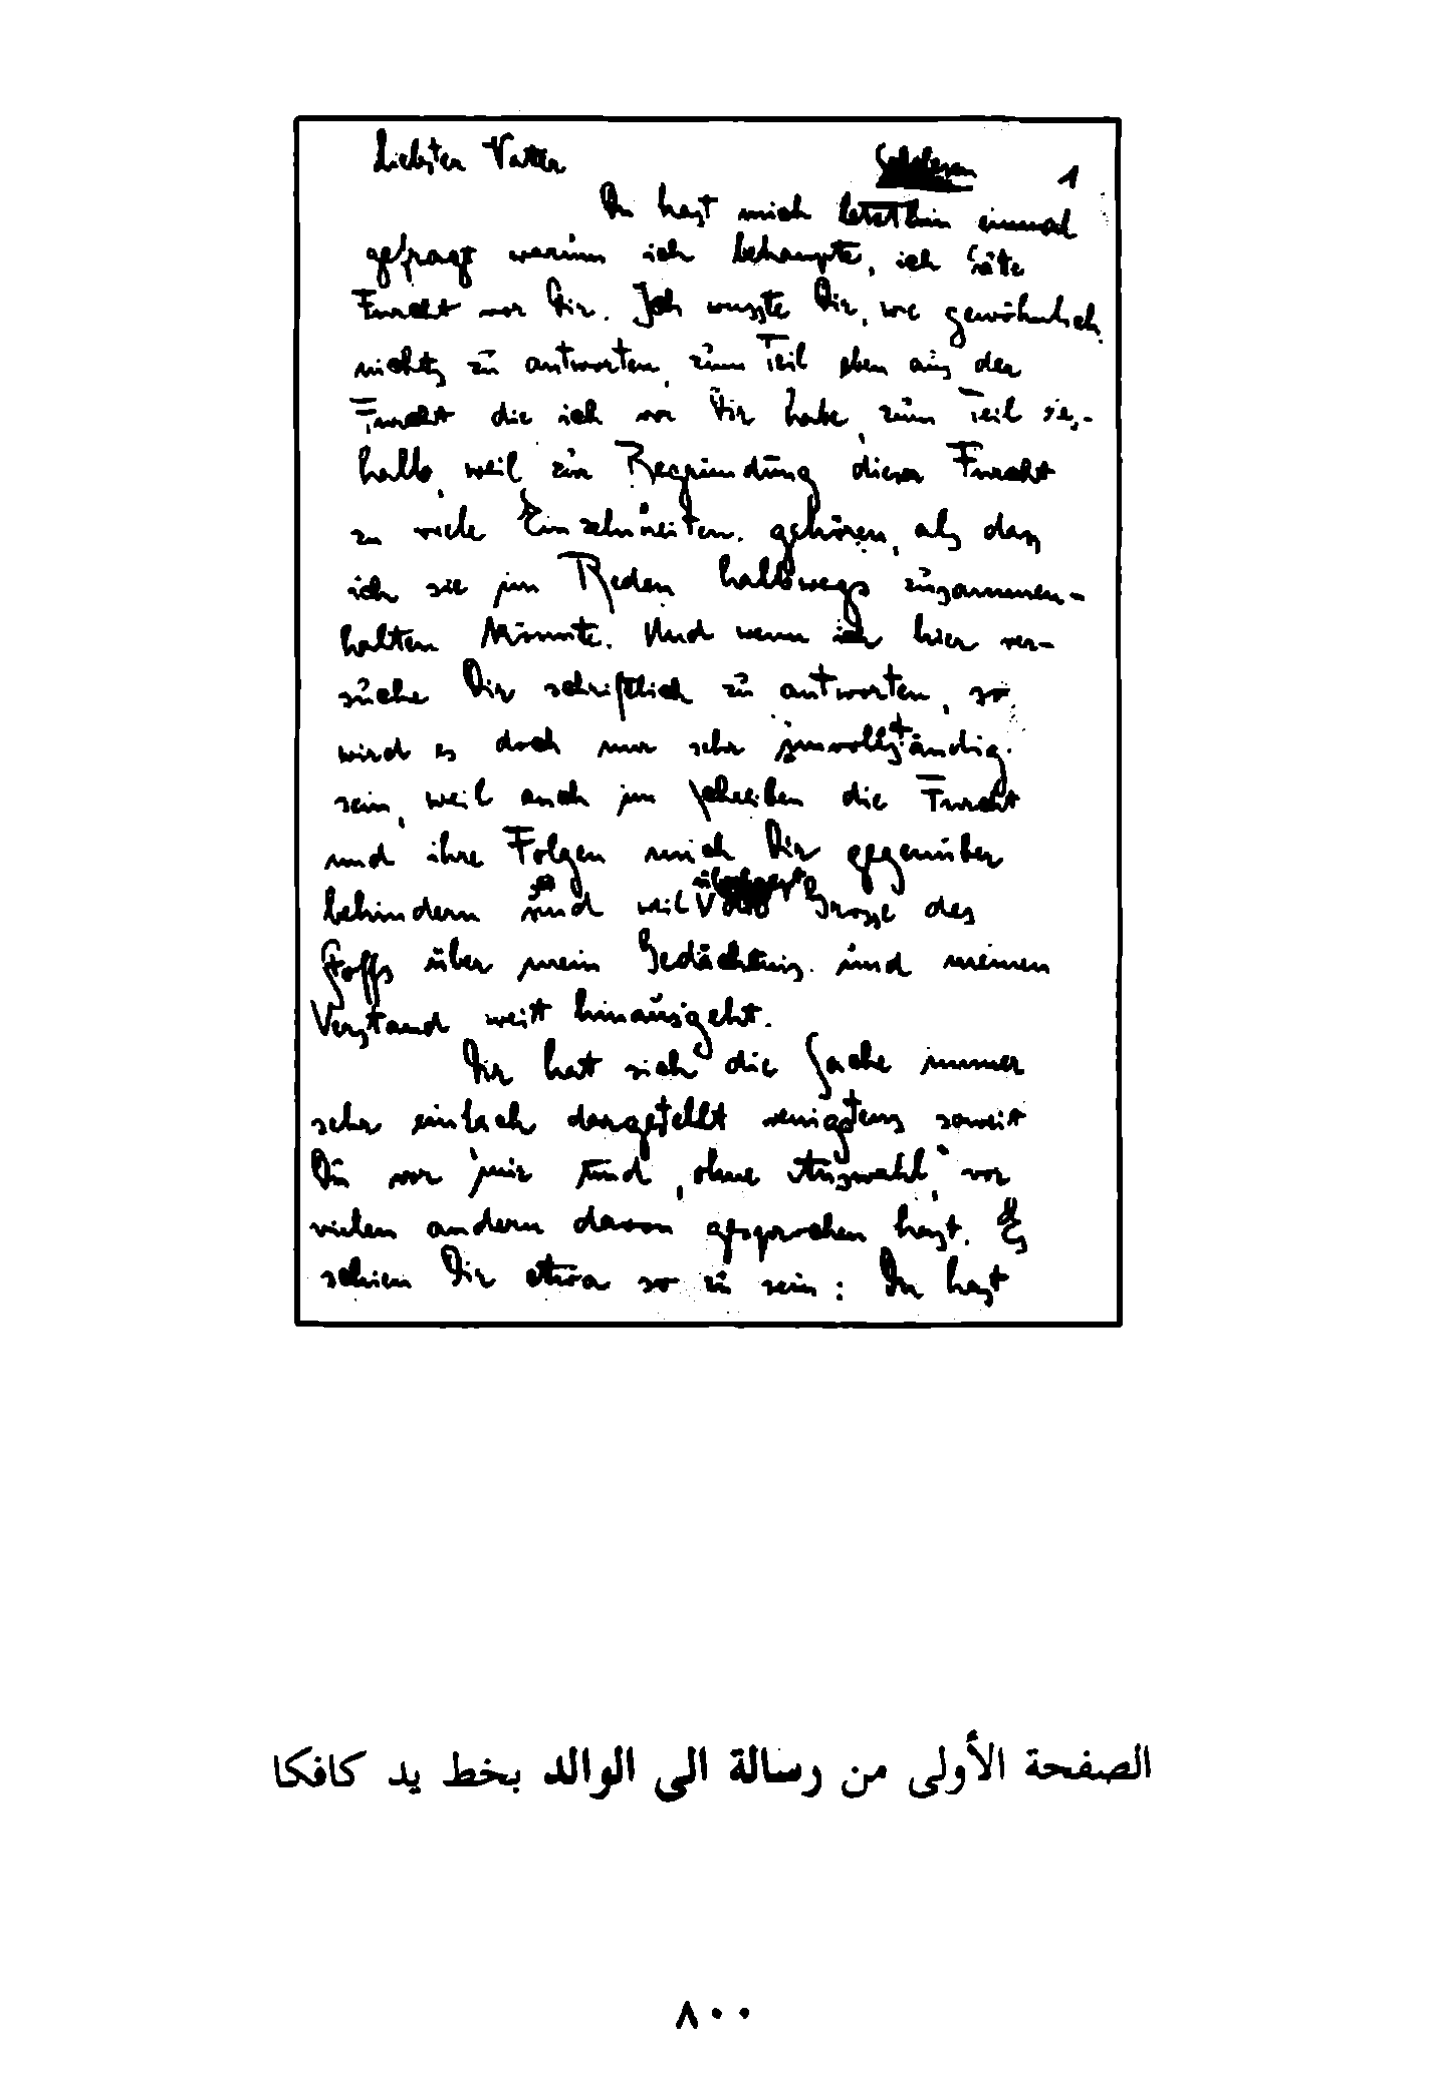 Liebster Vater
1
Du hast mich letzthin einmal
gefragt warum ich behaupte, ich hätte
Furcht vor Dir. Ich wusste Dir, wie gewöhnlich
nichts zu antworten, zum Teil eben aus der
Furcht die ich vor Dir habe, zum Teil des-
halb, weil zur Begründung dieser Furcht
zu viele Einzelnheiten gehören, als dass
ich sie im Reden halbwegs zusammen-
halten könnte. Und wenn ich hier ver-
suche Dir schriftlich zu antworten, so
wird es doch nur sehr unvollständig
sein, weil auch im Schreiben die Furcht
und ihre Folgen mich Dir gegenüber
behindern und weil Grösse des
Stoffs über mein Gedächtnis und meinen
Verstand weit hinausgeht.
Dir hat sich die Sache immer
sehr einfach dargestellt wenigstens soweit
Du vor mir und, ohne Auswahl, vor
vielen andern davon gesprochen hast. Es
schien Dir etwa so zu sein: Du hast
الصفحة الأولى من رسالة الى الوالد بخط يد كافكا
٨٠٠